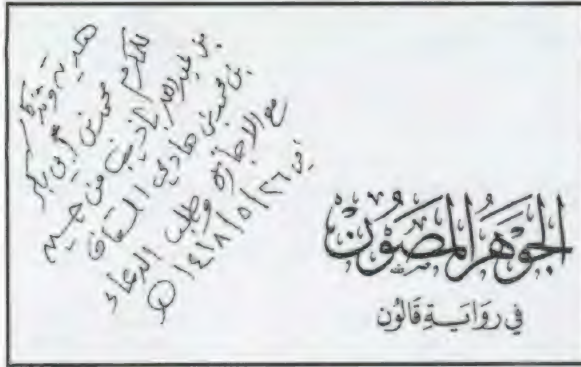 هدية وتذكار
للمكرم محمد بن أبي بكر
بن عبد الله باذيب من حسين
بن محمد بن هادي السقاف
مع الإجازة وطلب الدعاء
في ٢٦/٥/١٤١٨
الجوهر المصون
في رواية قالون